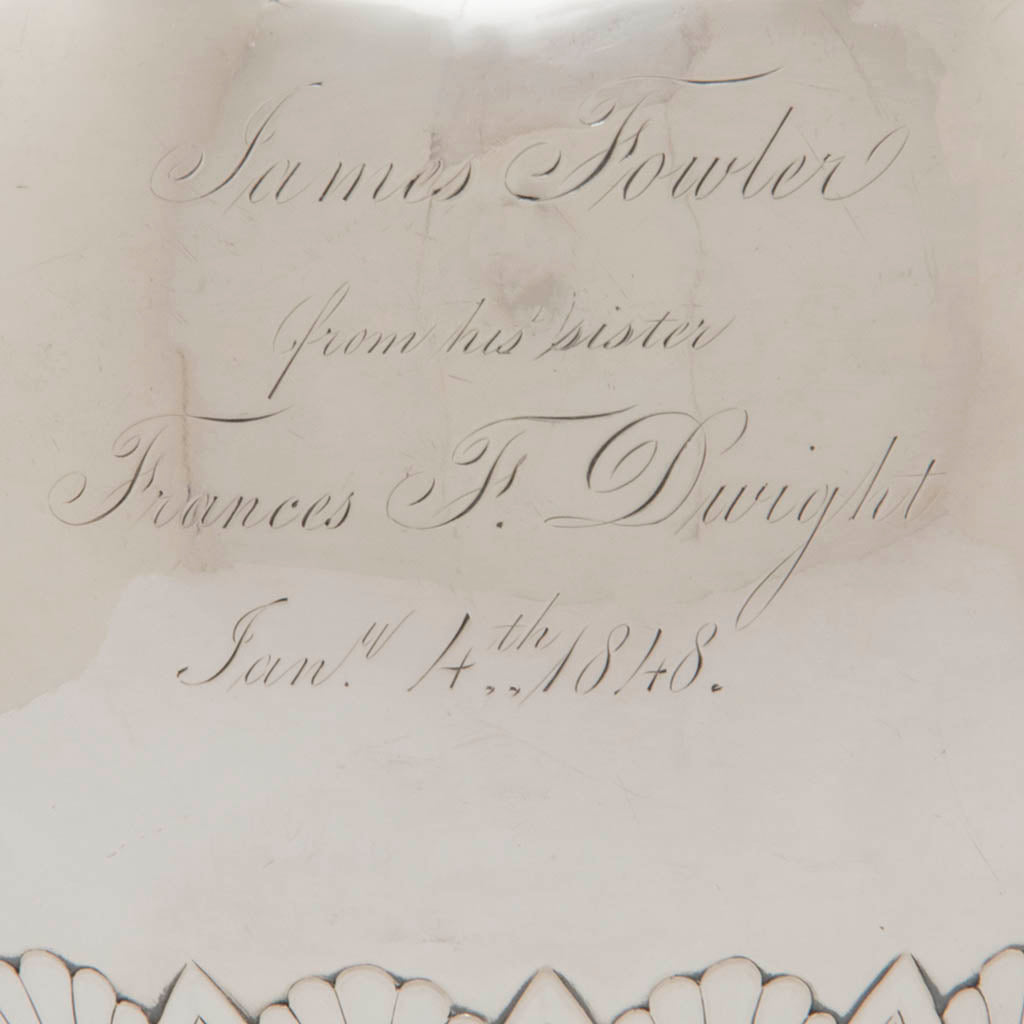 James Fowler
from his sister
Frances F. Dwight
Jan.y 4.th 1848.